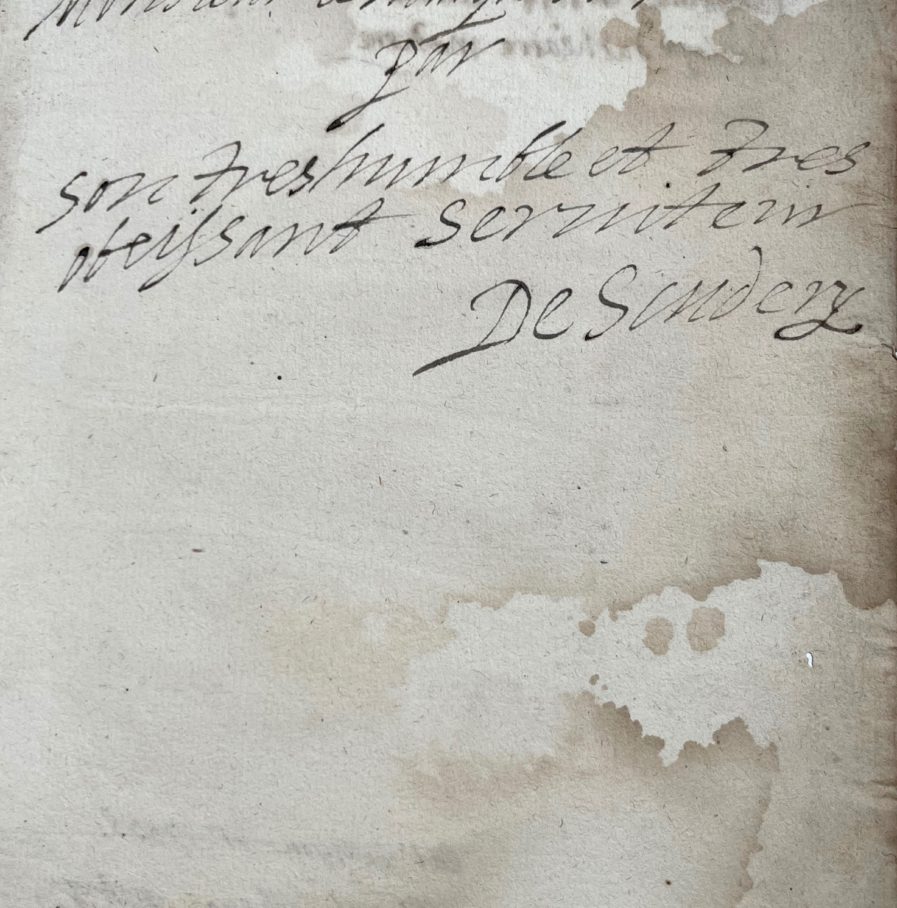 Monsieur
par
son treshumble et tres
obeissant seruiteur
De Scudery